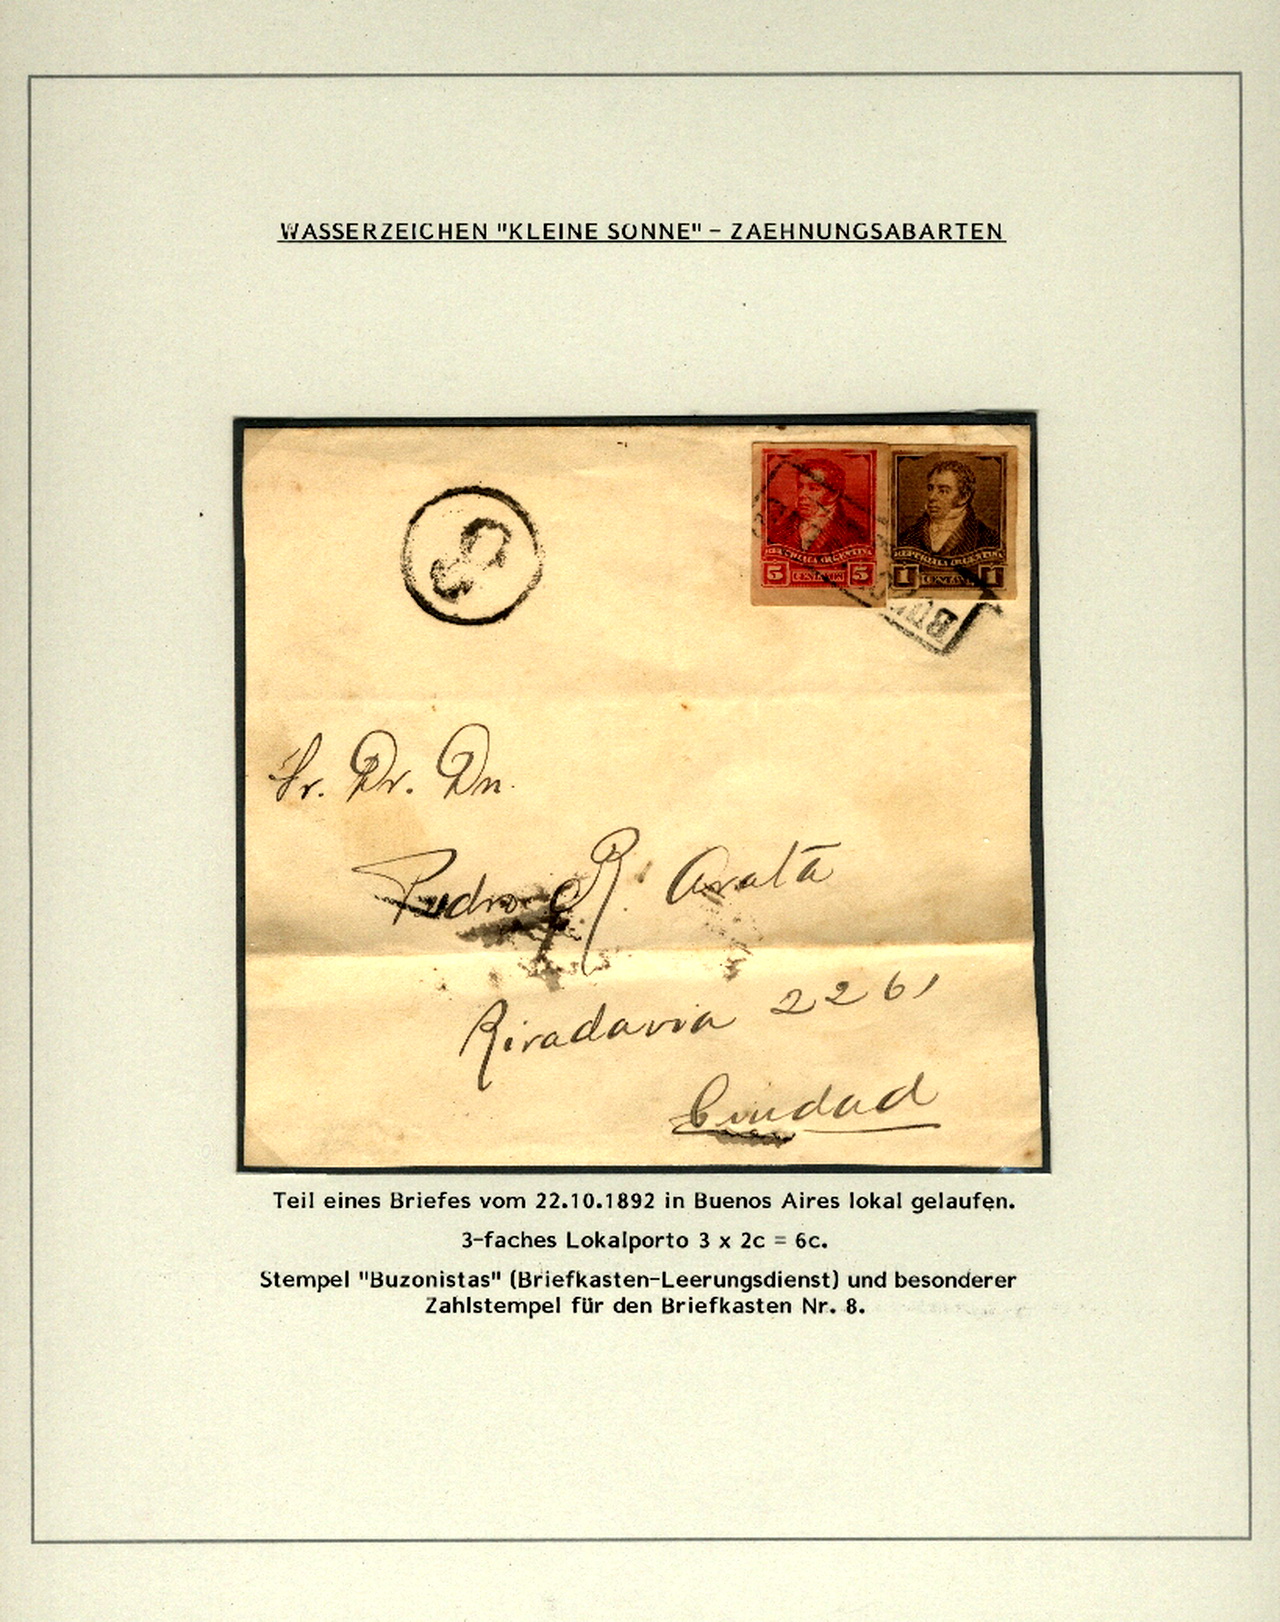 WASSERZEICHEN "KLEINE SONNE" - ZAEHNUNGSABARTEN
8
REPUBLICA ARGENTINA
5 CENTAVOS 5
REPUBLICA ARGENTINA
1 CENTAVO 1
Sr. Dr. Dn.
Pedro R. Arata
Rivadavia 2261
Ciudad
Teil eines Briefes vom 22.10.1892 in Buenos Aires lokal gelaufen.
3-faches Lokalporto 3 x 2c = 6c.
Stempel "Buzonistas" (Briefkasten-Leerungsdienst) und besonderer
Zahlstempel für den Briefkasten Nr. 8.